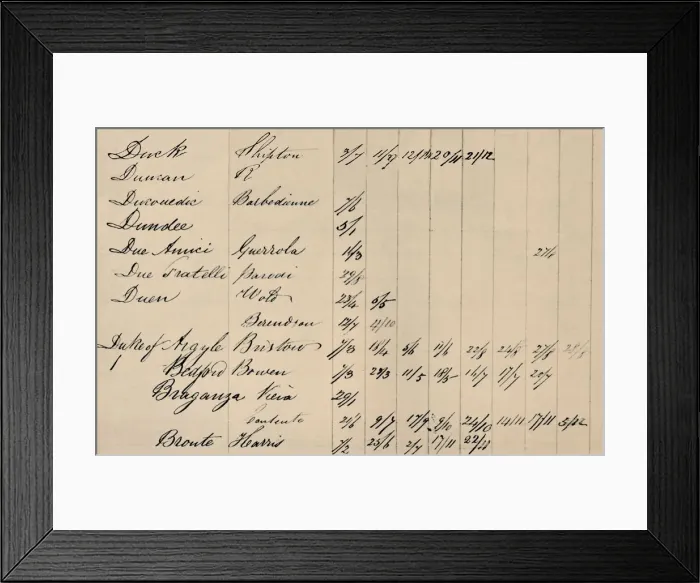 Duck Shipton 3/7 11/9 12/10 20/11 21/12
Duncan R
Ducouedic Barbedienne 7/6
Dundee 5/1
Due Amici Guerrola 14/3 27/4
Due Fratelli Parodi 29/8
Duen Wold 23/4 5/5
Berendson 12/7 12/10
Duke of Argyle Bristow 7/3 18/4 5/6 19/6 22/8 24/8 27/8 28/8
Bedford Bowen 7/3 29/3 11/5 18/5 16/7 17/7 20/7
Braganza Vieia 29/1
Contente 21/6 9/7 17/9 9/10 24/10 14/11 17/11 5/12
Bronte Harris 7/2 23/6 2/7 17/11 22/11